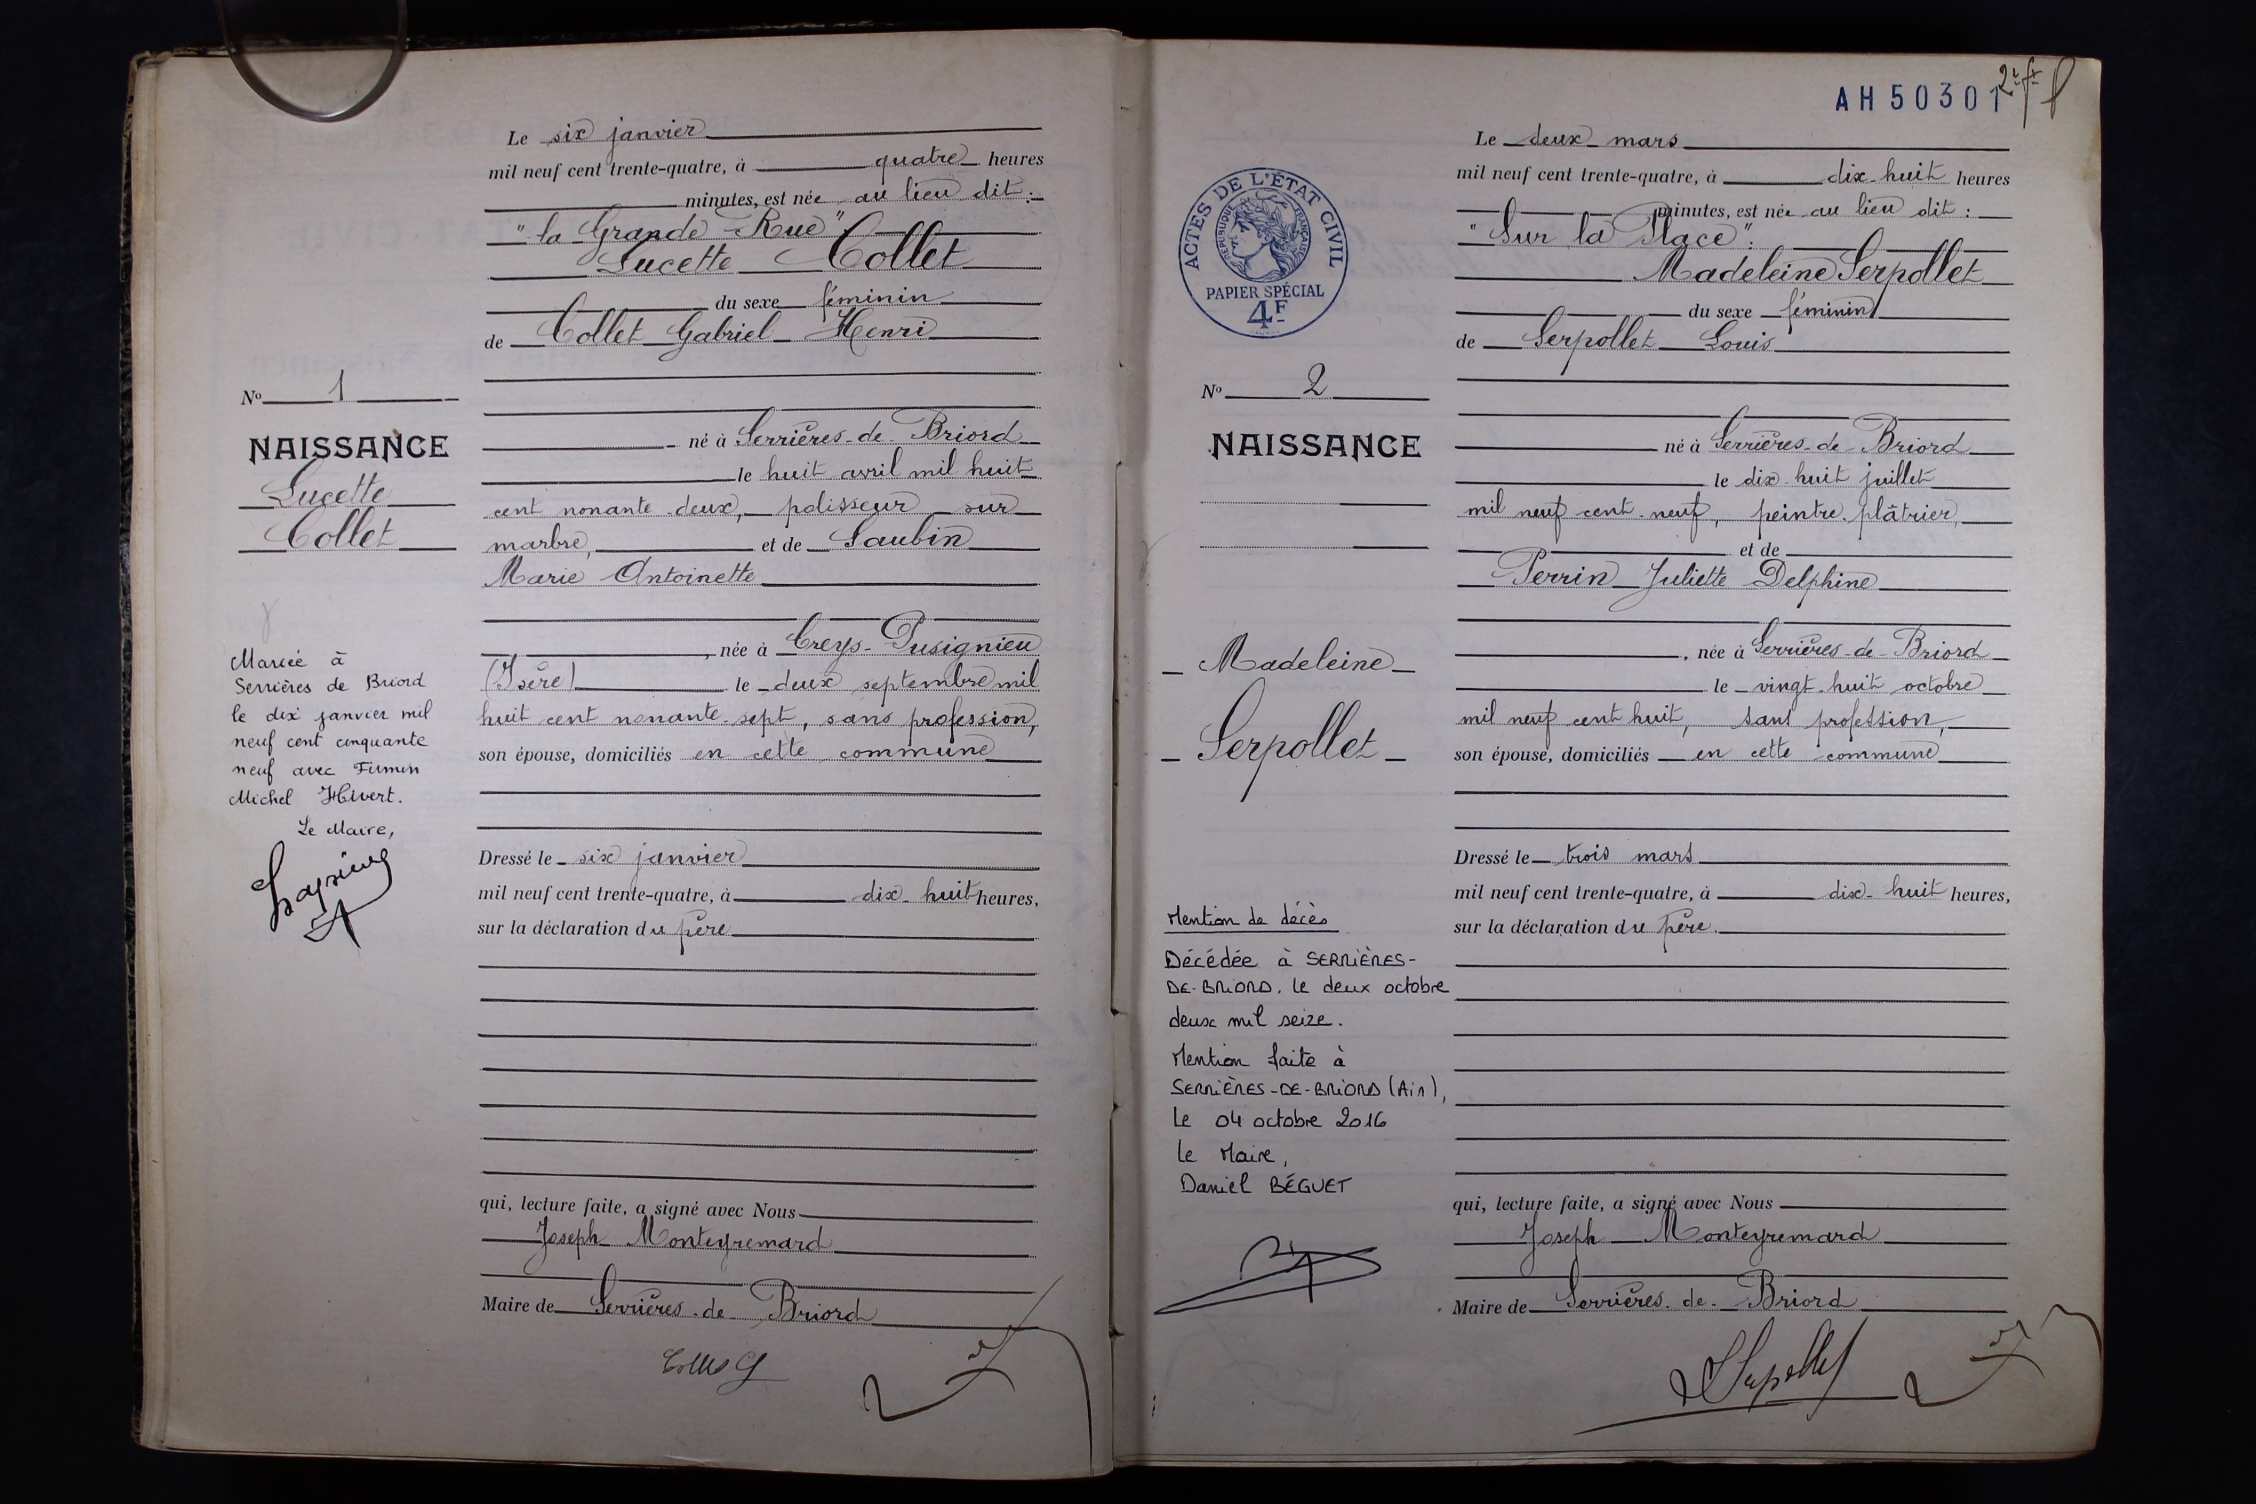 Le six janvier
mil neuf cent trente-quatre, à quatre heures
minutes, est née au lieu dit :
"la Grande Rue"
Lucette Collet
du sexe féminin
de Collet Gabriel Henri
né à Serrières-de-Briord
le huit avril mil huit
cent nonante deux, polisseur sur
marbre, et de Saubin
Marie Antoinette
, née à Creys-Pusignieu
(Isère) le deux septembre mil
huit cent nonante-sept, sans profession,
son épouse, domiciliés en cette commune
Dressé le six janvier
mil neuf cent trente-quatre, à dix-huit heures,
sur la déclaration du père
qui, lecture faite, a signé avec Nous
Joseph Monteyremard
Maire de Serrières-de-Briord
Collet G
No 1
NAISSANCE
Lucette
Collet
Mariée à
Serrières de Briord
le dix janvier mil
neuf cent cinquante
neuf avec Firmin
Michel Hivert.
Le Maire,
AH50301
Le deux mars
mil neuf cent trente-quatre, à dix-huit heures
minutes, est née au lieu dit :
"Sur la Place".
Madeleine Serpollet
du sexe féminin
de Serpollet Louis
né à Serrières-de-Briord
le dix-huit juillet
mil neuf cent neuf, peintre-plâtrier,
et de
Perrin Juliette Delphine
, née à Serrières-de-Briord
le vingt-huit octobre
mil neuf cent huit, sans profession,
son épouse, domiciliés en cette commune
Dressé le trois mars
mil neuf cent trente-quatre, à dix-huit heures,
sur la déclaration du père.
qui, lecture faite, a signé avec Nous
Joseph Monteyremard
Maire de Serrières-de-Briord
Serpollet
ACTES DE L'ÉTAT CIVIL
RÉPUBLIQUE FRANÇAISE
PAPIER SPÉCIAL
4F
No 2
NAISSANCE
Madeleine
Serpollet
Mention de décès
Décédée à SERRIÈRES-
DE-BRIORD. le deux octobre
deux mil seize.
Mention faite à
SERRIÈRES-DE-BRIORD (Ain),
Le 04 octobre 2016
Le Maire,
Daniel BÉGUET